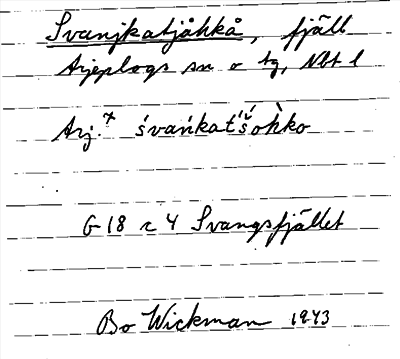 Svanjkatjåhkå, fjäll
Arjeplogs sn o tg, Nbt l
Arj. × śvańkat'š́ohko
G 18 r 4 Svangsfjället
Bo Wickman 1943